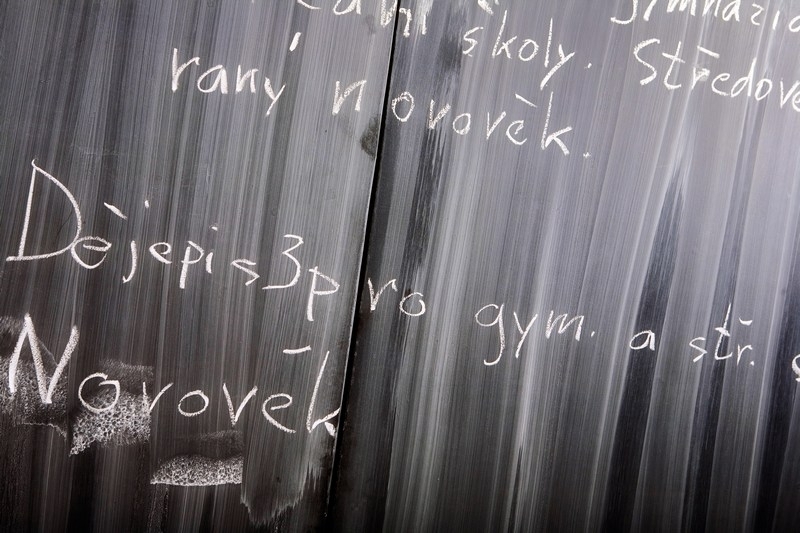 školy. Středově
raný novověk.
Dějepis 3 pro gym. a stř. š
Novověk